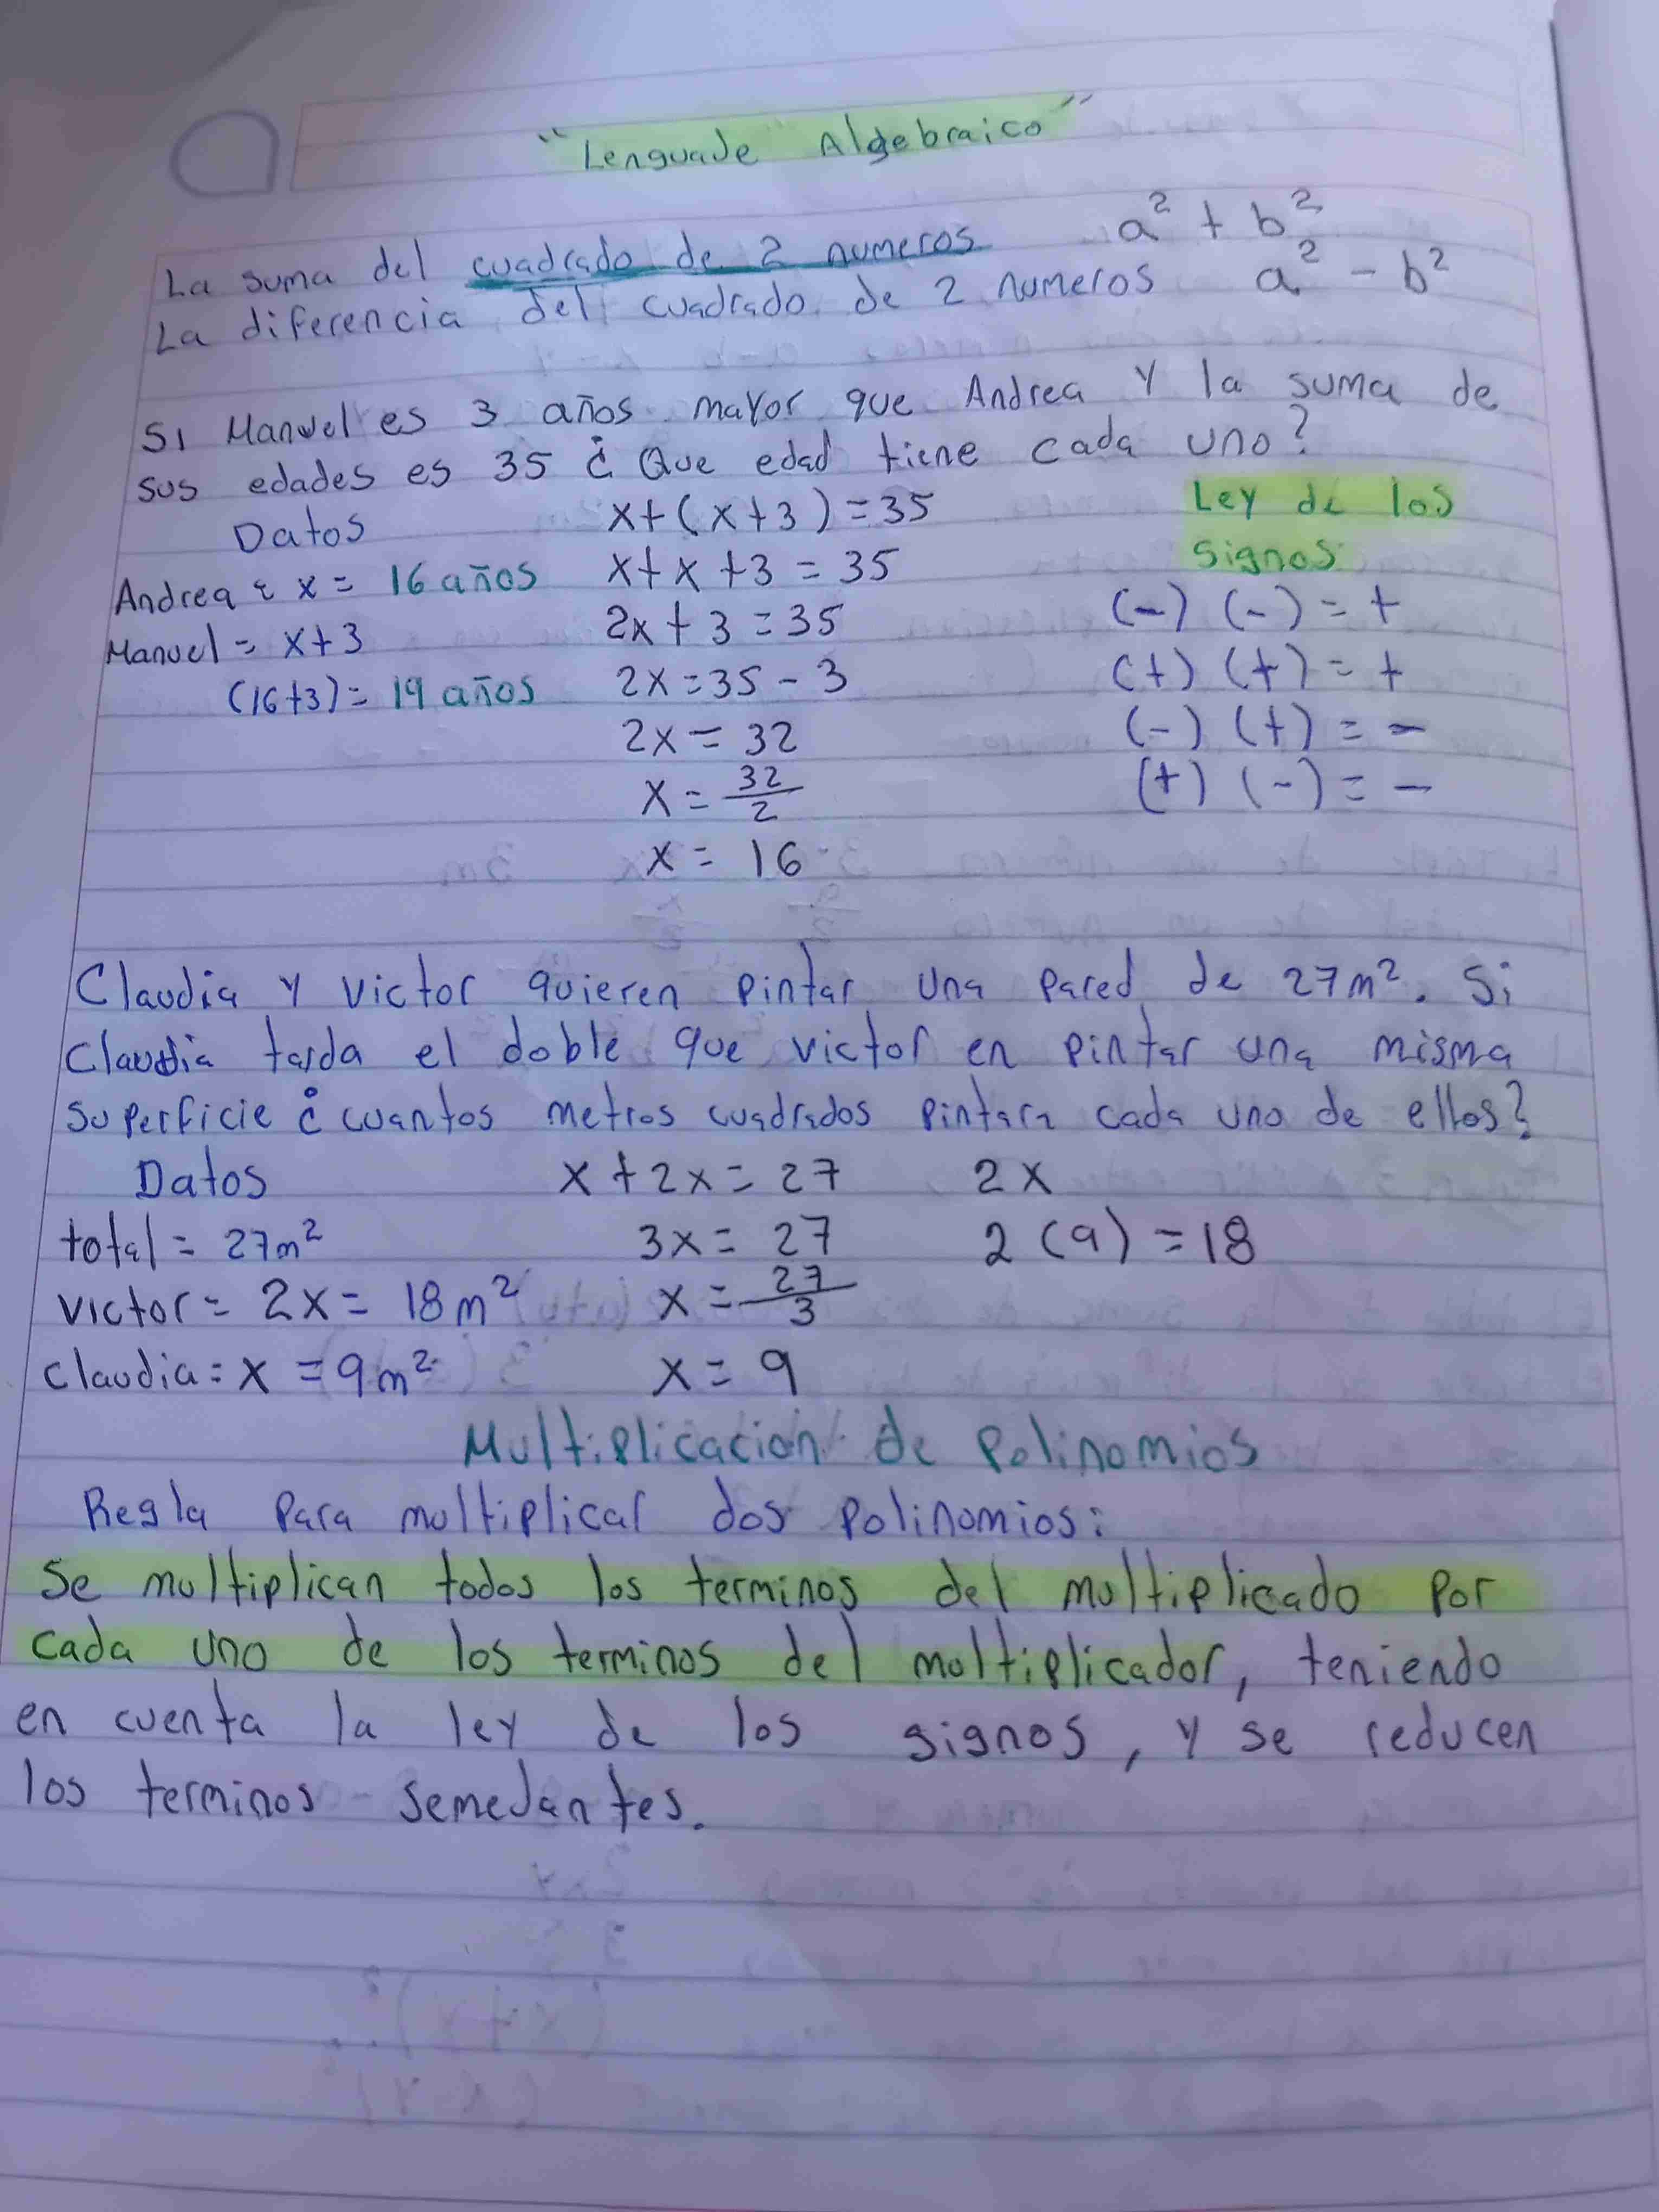 "Lenguaje Algebraico"
La suma del cuadrado de 2 numeros a² + b²
La diferencia del cuadrado de 2 numeros a² - b²
Si Manuel es 3 años mayor que Andrea y la suma de
sus edades es 35 ¿ Que edad tiene cada uno?
Datos
Andrea : x = 16 años
Manuel = x+3
(16+3) = 19 años
x+(x+3)=35
x+x+3=35
2x+3=35
2x=35-3
2x=32
x=32/2
x=16
Ley de los
signos
(-) (-) = +
(+) (+) = +
(-) (+) = -
(+) (-) = -
Claudia y victor quieren pintar una pared de 27m². Si
Claudia tarda el doble que victor en pintar una misma
superficie ¿ cuantos metros cuadrados pintara cada uno de ellos?
Datos
total = 27m²
victor = 2x = 18m²
claudia = x = 9m²
x+2x=27
3x=27
x=27/3
x=9
2x
2(9)=18
Multiplicacion de polinomios
Regla para multiplicar dos polinomios:
Se multiplican todos los terminos del multiplicado por
cada uno de los terminos del multiplicador, teniendo
en cuenta la ley de los signos, y se reducen
los terminos semejantes.